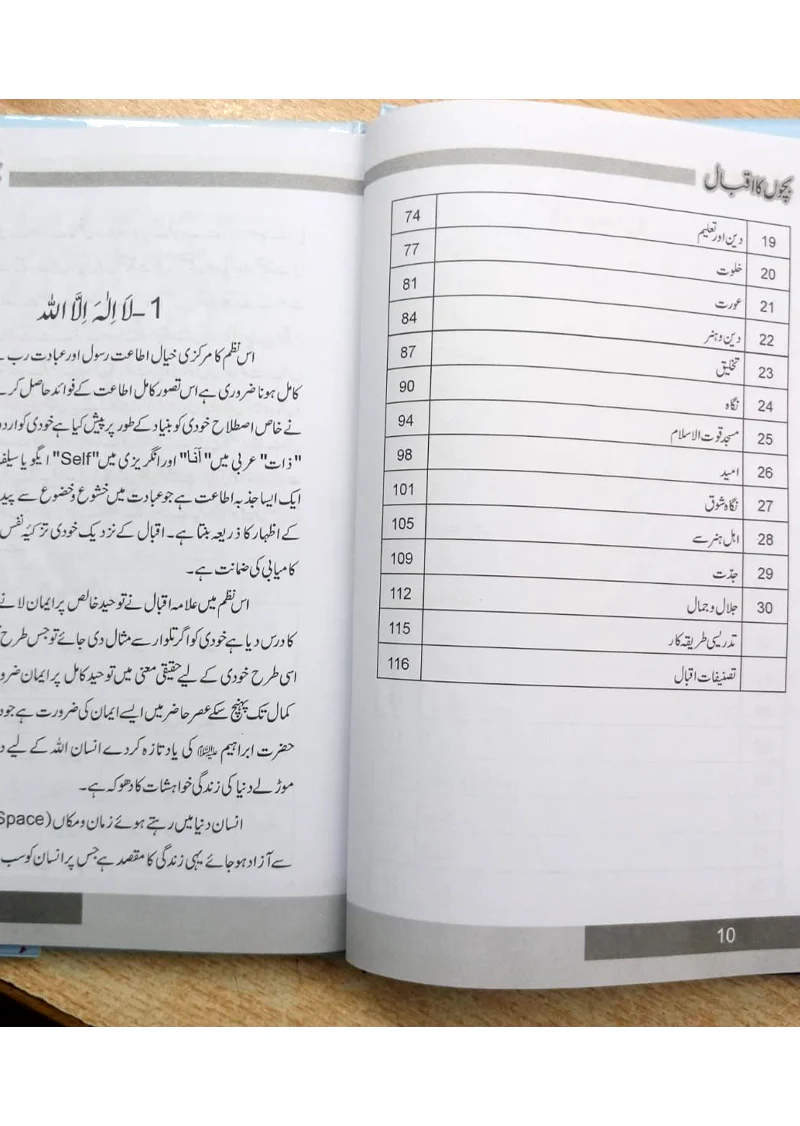 بچوں کا اقبال
19 دین اور تعلیم 74
20 خلوت 77
21 عورت 81
22 دین و ہنر 84
23 تخلیق 87
24 نگاہ 90
25 مسجد قوت الاسلام 94
26 امید 98
27 نگاہ شوق 101
28 اہل ہنر سے 105
29 جدّت 109
30 جلال و جمال 112
تدریسی طریقہ کار 115
تصنیفات اقبال 116
10
1 – لَا اِلٰہَ اِلَّا اللّٰہ
اس نظم کا مرکزی خیال اطاعت رسول اور عبادت رب
کامل ہونا ضروری ہے اس تصور کامل اطاعت کے فوائد حاصل کر
نے خاص اصطلاح خودی کو بنیاد کے طور پر پیش کیا ہے خودی کو
"ذات" عربی میں "اَنَا" اور انگریزی میں "Self" ایگو یا
ایک ایسا جذبہ اطاعت ہے جو عبادت میں خشوع و خضوع سے
کے اظہار کا ذریعہ بنتا ہے۔ اقبال کے نزدیک خودی تزکیۂ نفس
کامیابی کی ضمانت ہے۔
اس نظم میں علامہ اقبال نے توحید خالص پر ایمان لانے
کا درس دیا ہے خودی کو اگر تلوار سے مثال دی جائے تو جس طرح
اسی طرح خودی کے لیے حقیقی معنی میں توحید کامل پر ایمان
کمال تک پہنچ سکے عصر حاضر میں ایسے ایمان کی ضرورت ہے جو
حضرت ابراہیم علیہ السلام کی یاد تازہ کر دے انسان اللہ کے لیے
موڑ لے دنیا کی زندگی خواہشات کا دھوکہ ہے۔
انسان دنیا میں رہتے ہوئے زمان و مکاں (Space
سے آزاد ہو جائے یہی زندگی کا مقصد ہے جس پر انسان کو سب